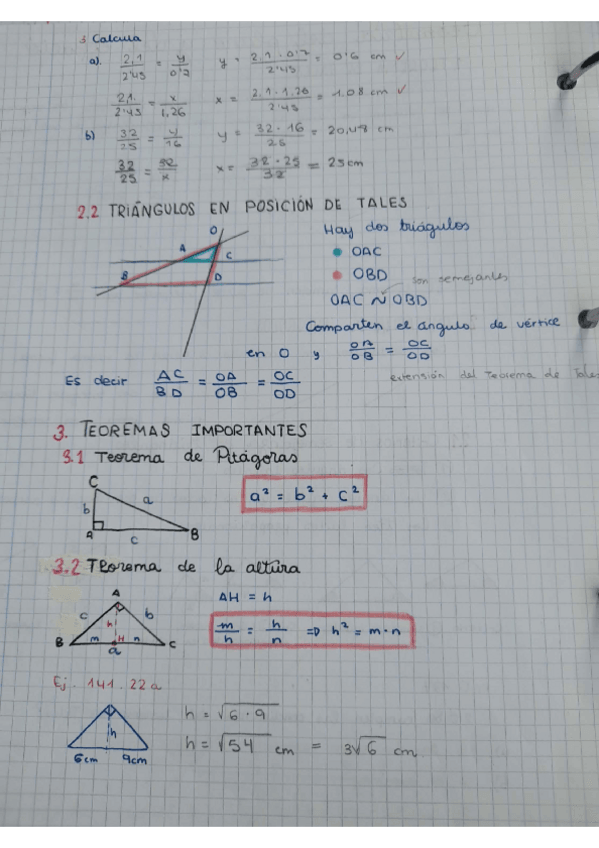 3 Calcula
a). 2,1/2'45 = y/0'7 y = 2,1 · 0'7/2'45 = 0'6 cm ✓
2,1/2'45 = x/1,26 x = 2,1 · 1,26/2'45 = 1.08 cm ✓
b) 32/25 = y/16 y = 32 · 16/25 = 20,48 cm
32/25 = 32/x x = 32 · 25/32 = 25 cm
2.2 TRIÁNGULOS EN POSICIÓN DE TALES
O
A
C
B
D
Hay dos triágulos
OAC
OBD
son semejantes
OAC Ñ OBD
Comparten el ángulo de vértice
en O y OA/OB = OC/OD
Es decir AC/BD = OA/OB = OC/OD
extensión del Teorema de Tales
3. TEOREMAS IMPORTANTES
3.1 Teorema de Pitágoras
C
b
a
A
c
B
a² = b² + c²
3.2 Teorema de la altura
A
c
b
h
B
m
H
n
C
a
AH = h
m/h = h/n => h² = m · n
Ej. 141. 22a
h
6cm 9cm
h = √6 · 9
h = √54 cm = 3√6 cm